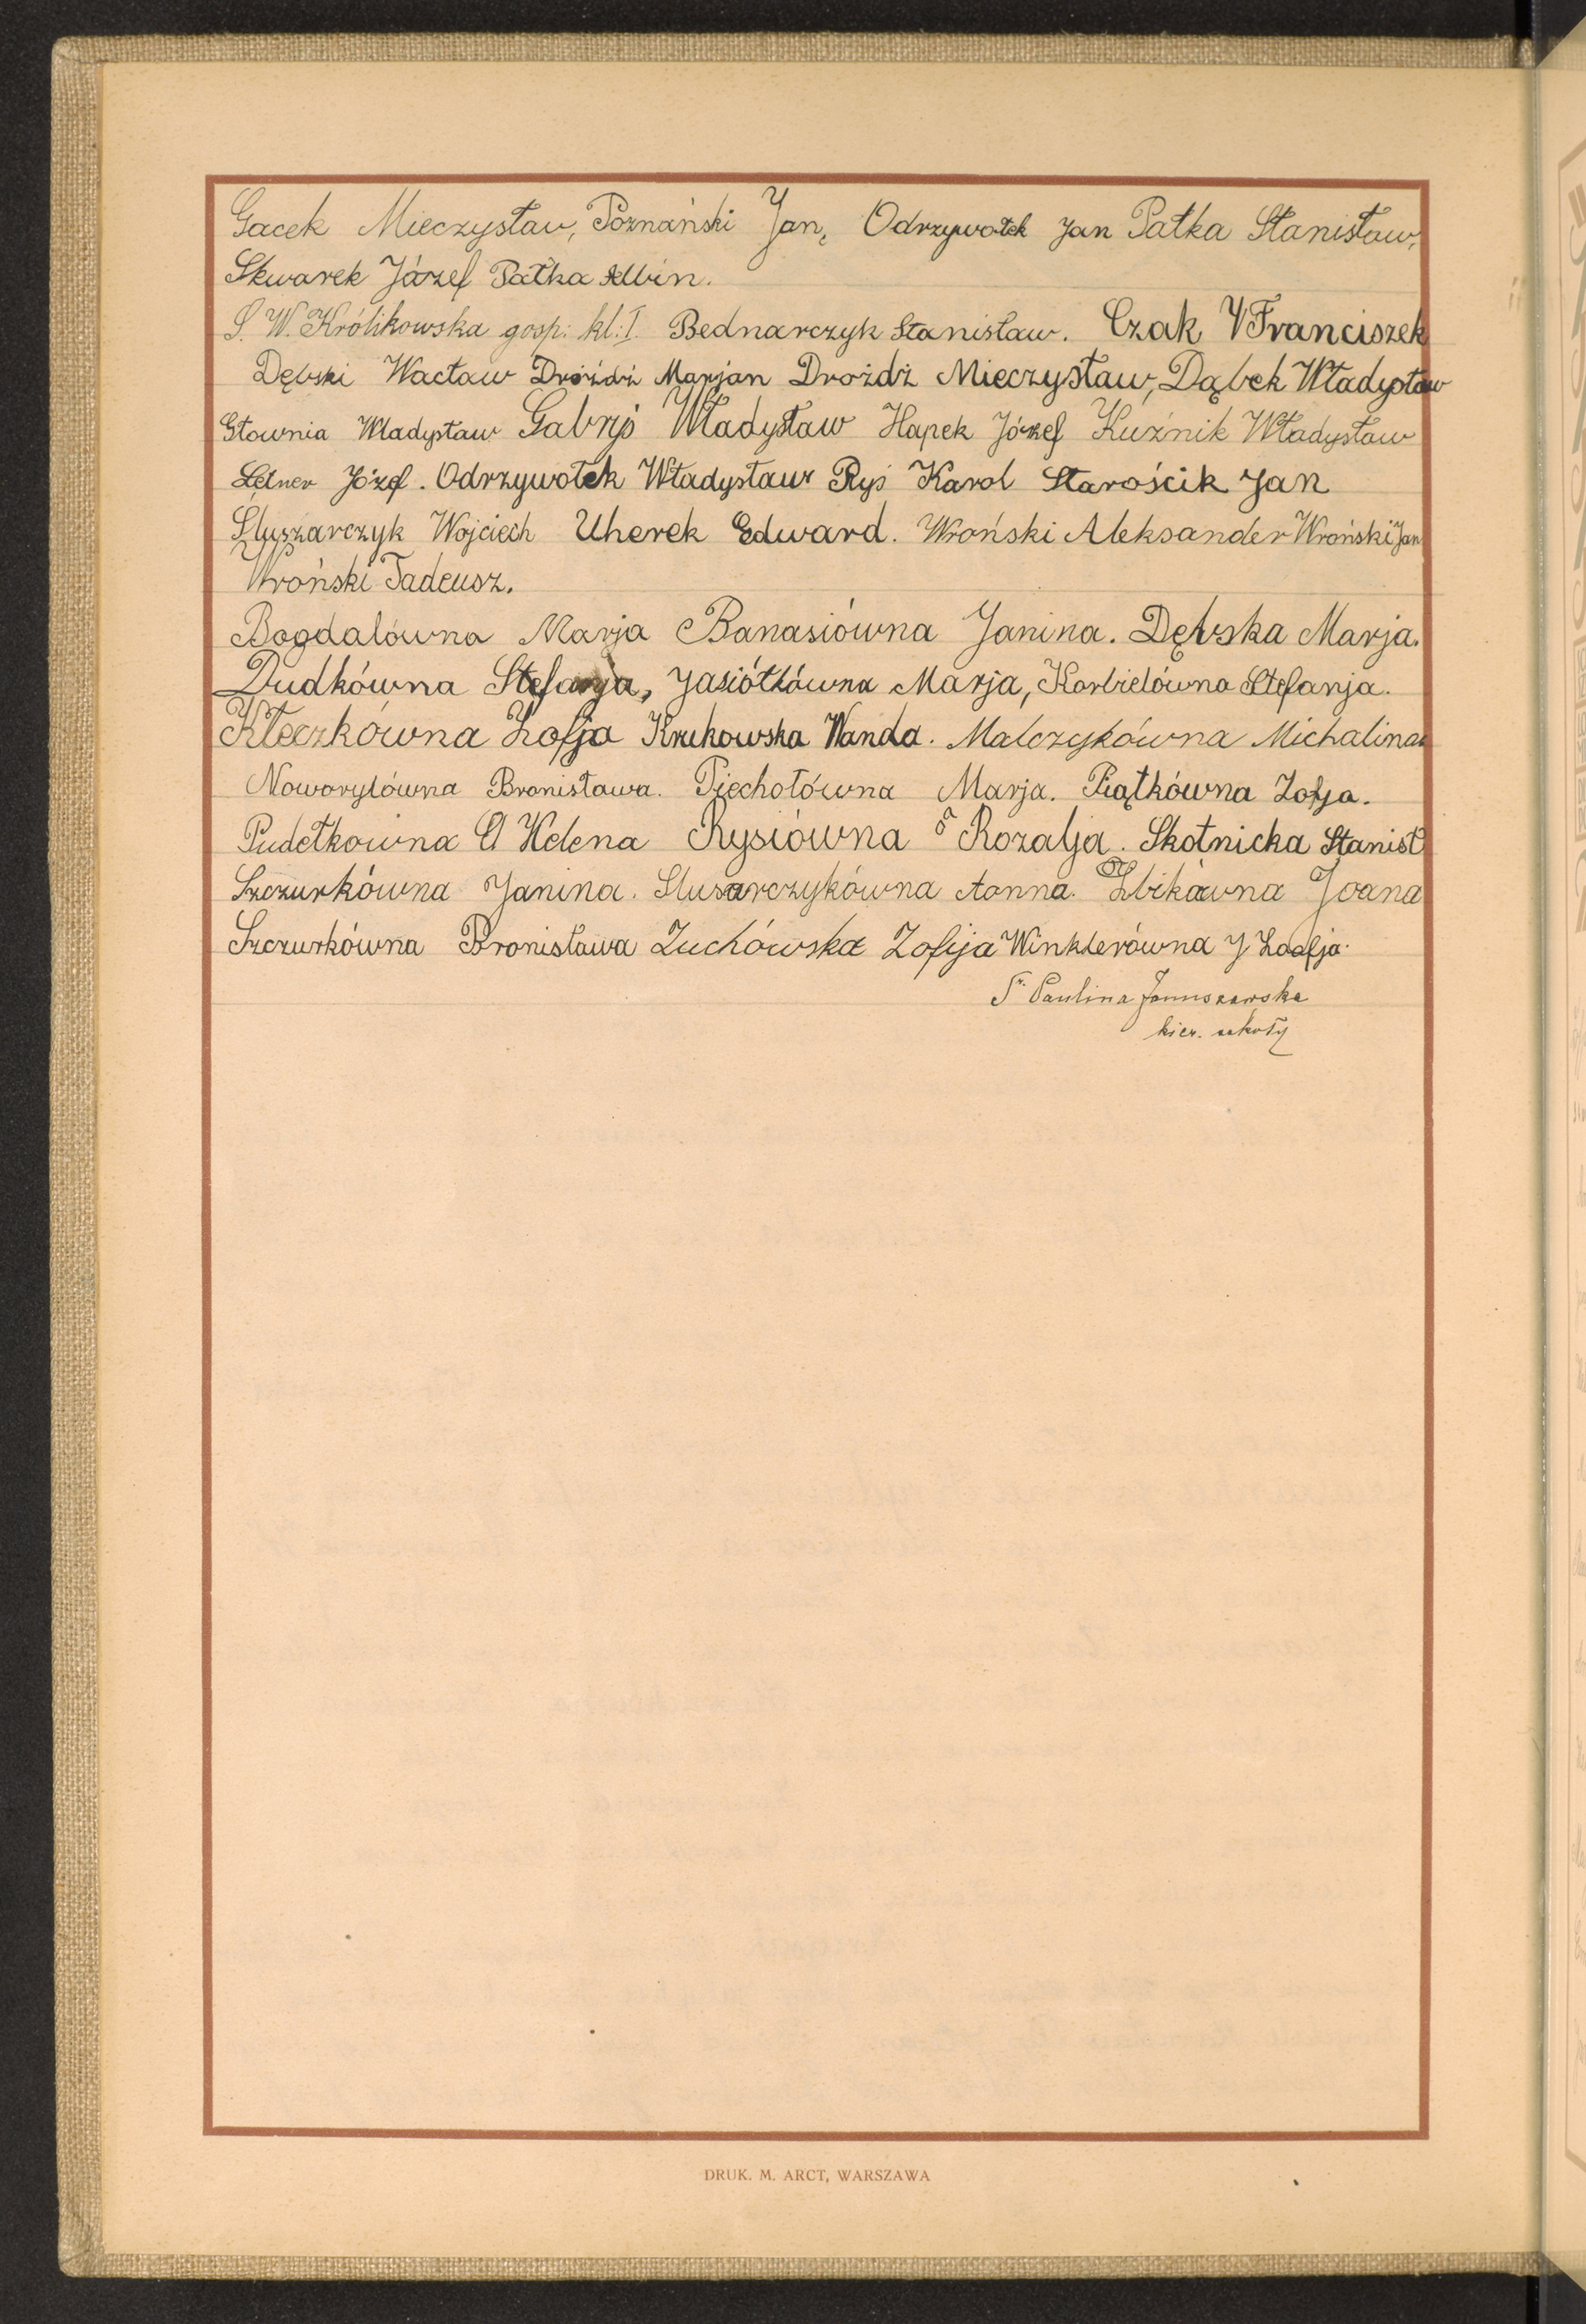 Gacek Mieczysław, Poznański Jan, Odrzywołek Jan Pałka Stanisław,
Skwarek Józef Pałka Albin.
S. W. Królikowska gosp: kl: I. Bednarczyk Stanisław. Czak V Franciszek
Dębski Wacław Droźdź Marjan Drożdż Mieczysław, Dąbek Władysław
Głownia Władysław Gabryś Władysław Hapek Józef Kuźnik Władysław
Letner Józef. Odrzywołek Władysław Ryś Karol Starościk Jan
Sluszarczyk Wojciech Uherek Edward. Wroński Aleksander Wroński Jan
Wroński Tadeusz.
Bogdalówna Marja Banasiówna Janina. Dębska Marja.
Dudkówna Stefanja, Jasiótkówna Marja, Korbielówna Stefanja.
Kłeczkówna Zofja Krukowska Wanda. Malczykówna Michalina
Noworylówna Bronisława. Piechotówna Marja. Piątkówna Zofja.
Pudełkowna Helena Rysiówna Rozalja. Skotnicka Stanisł
Szczurkówna Janina. Slusarczykówna Anna. Żbikówna Joana
Szczurkówna Bronisława Zuchówska Zofija Winklerówna J Zoofja.
S. Paulina Januszewska
kier. szkoły
DRUK. M. ARCT, WARSZAWA